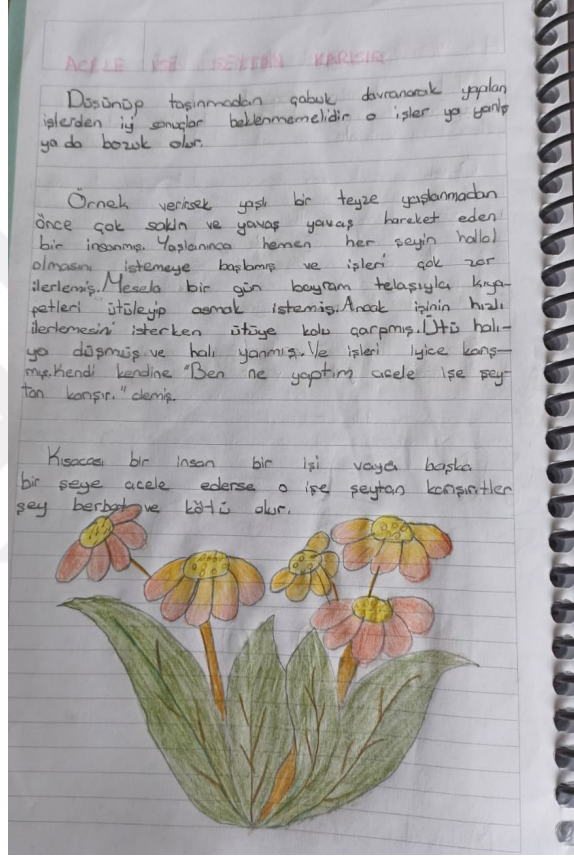 ACELE İŞE ŞEYTAN KARIŞIR
Düşünüp taşınmadan çabuk davranarak yapılan
işlerden iyi sonuçlar beklenmemelidir o işler ya yanlış
ya da bozuk olur.
Örnek verirsek yaşlı bir teyze yaşlanmadan
önce çok sakin ve yavaş yavaş hareket eden
bir insanmış. Yaşlanınca hemen her şeyin hallol
olmasını istemeye başlamış ve işleri çok zor
ilerlemiş. Mesela bir gün bayram telaşıyla kıya-
petleri ütüleyip asmak istemiş. Ancak işinin hızlı
ilerlemesini isterken ütüye kolu çarpmış. Ütü halı-
ya düşmüş ve halı yanmış. Ve işleri iyice karış-
mış. Kendi kendine "Ben ne yaptım acele işe şey-
tan karışır." demiş.
Kısacası bir insan bir işi vaya başka
bir şeye acele ederse o işe şeytan karışır. Her
şey berbat ve kötü olur.